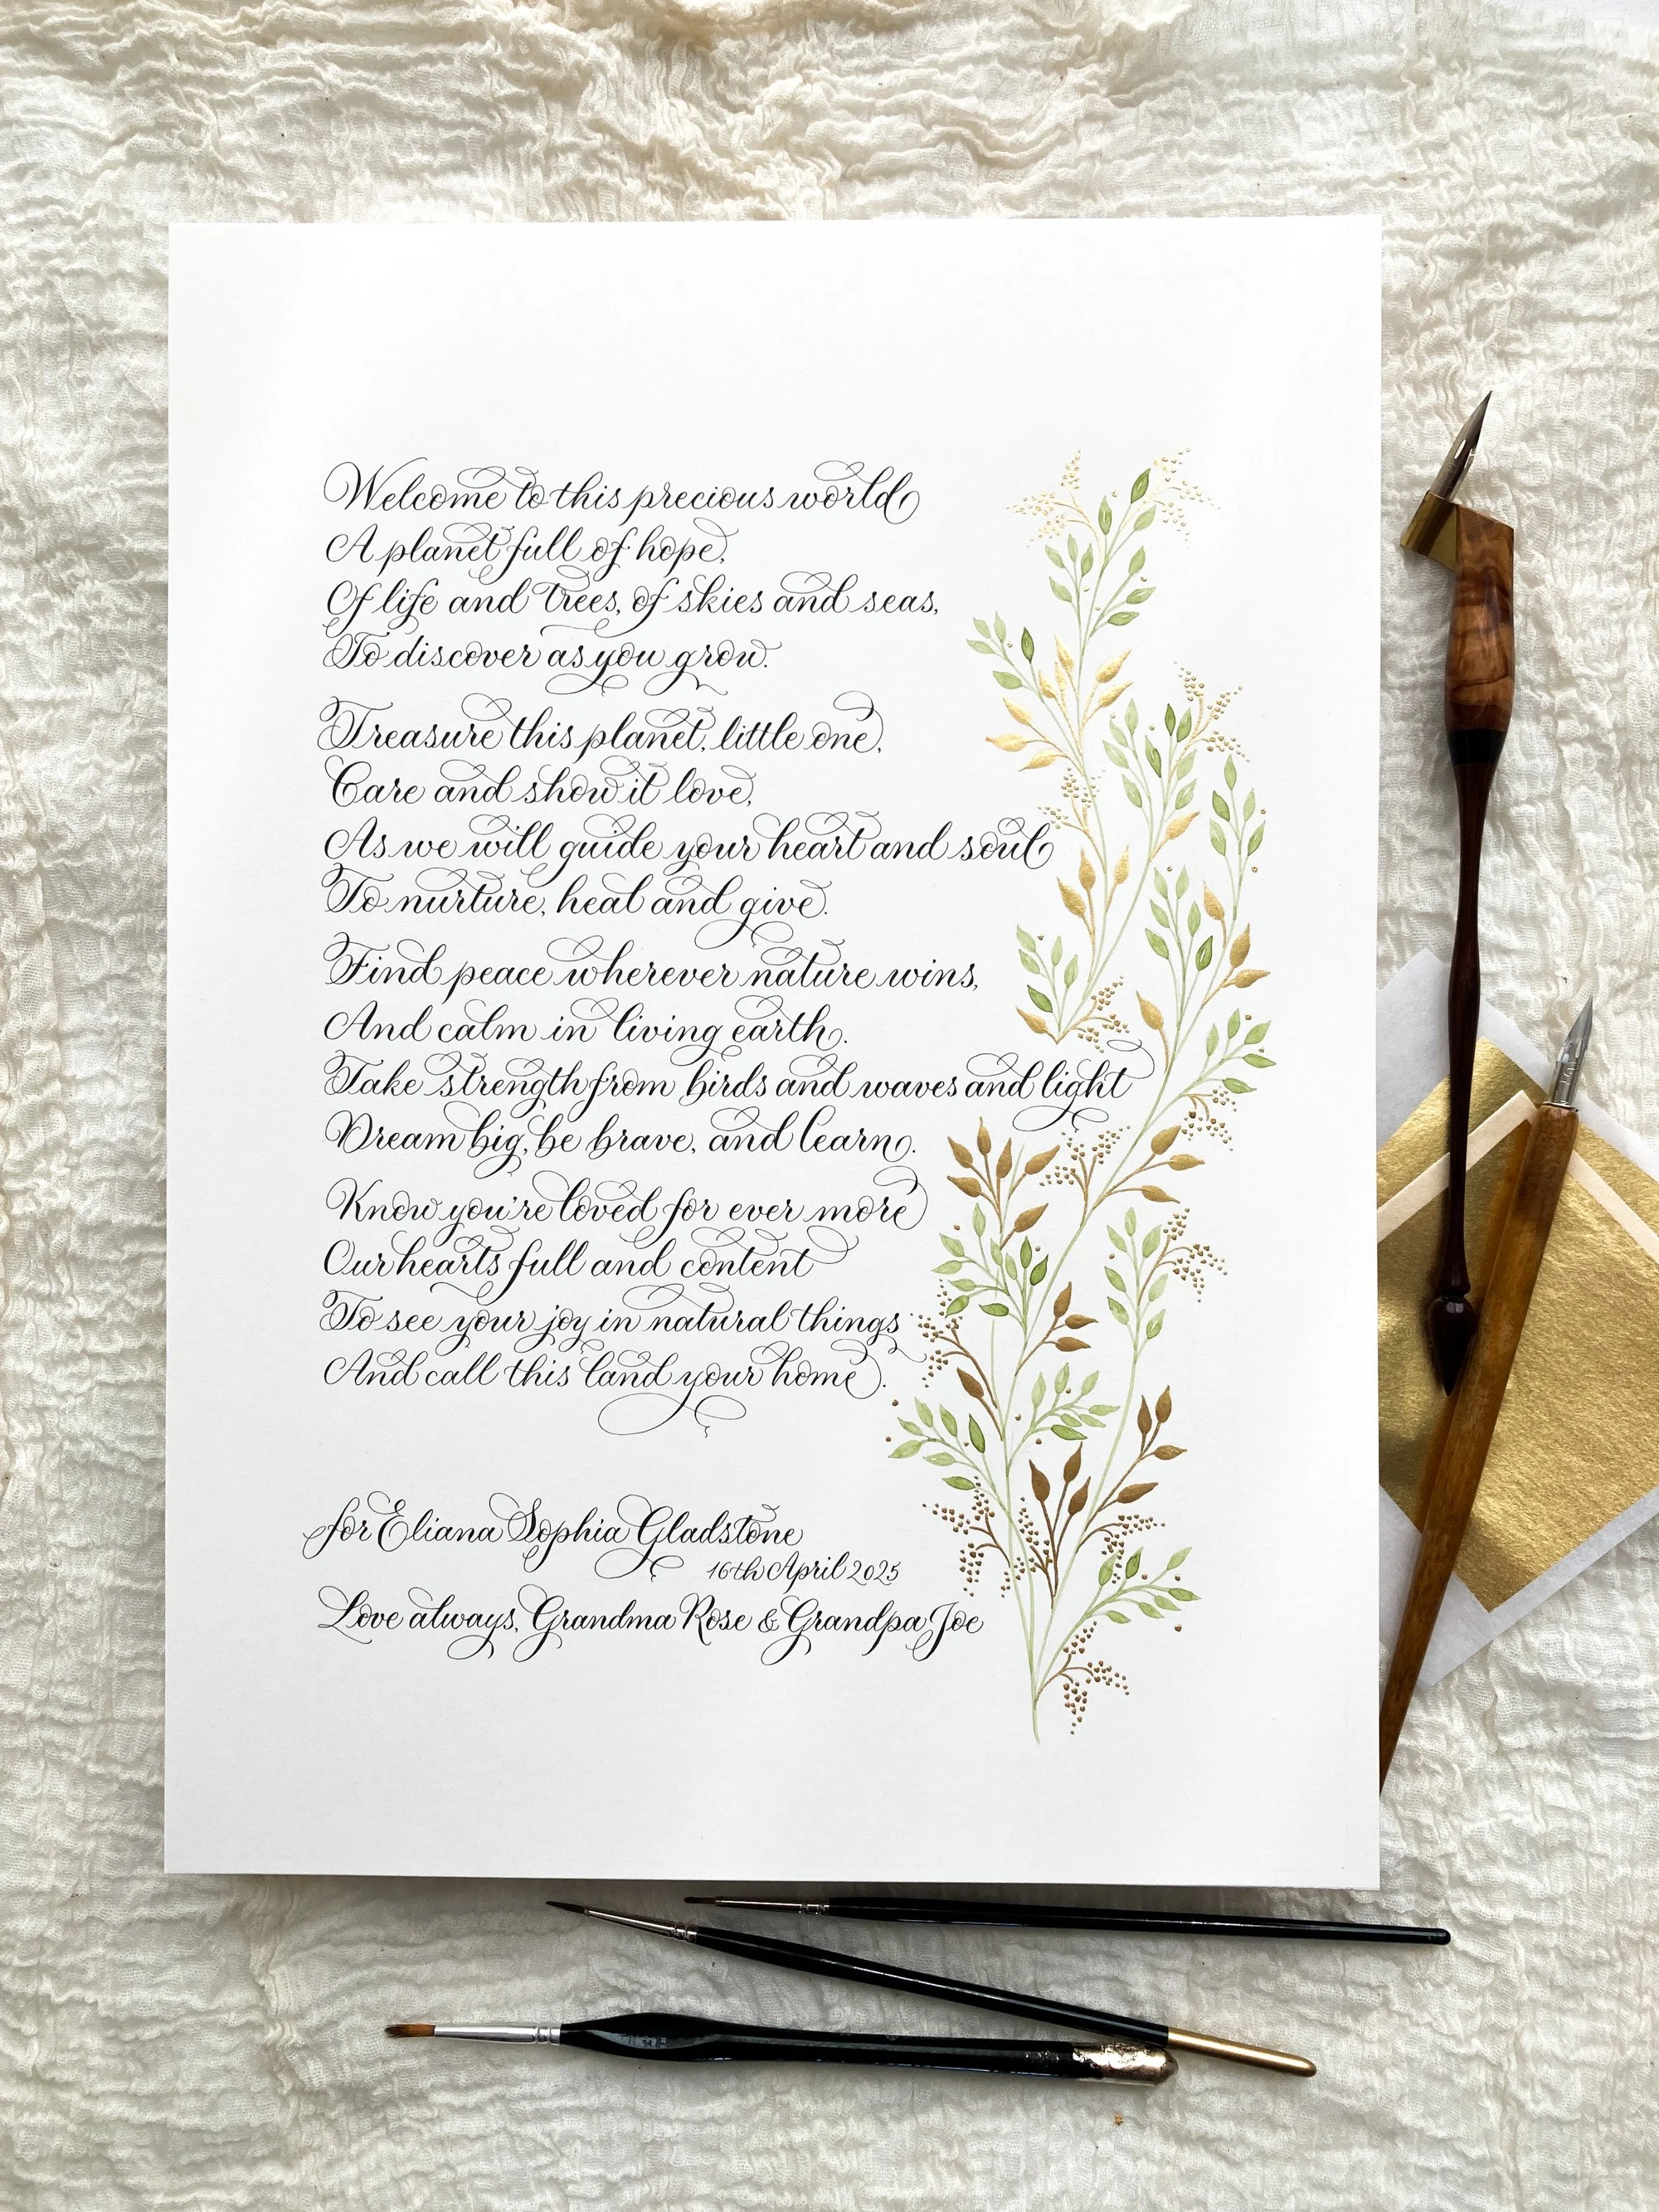 Welcome to this precious world
A planet full of hope,
Of life and trees, of skies and seas,
To discover as you grow.
Treasure this planet, little one,
Care and show it love,
As we will guide your heart and soul
To nurture, heal and give.
Find peace wherever nature wins,
And calm in living earth.
Take strength from birds and waves and light
Dream big, be brave, and learn.
Know you're loved for ever more
Our hearts full and content
To see your joy in natural things
And call this land your home.
for Eliana Sophia Gladstone
16th April 2025
Love always, Grandma Rose & Grandpa Joe